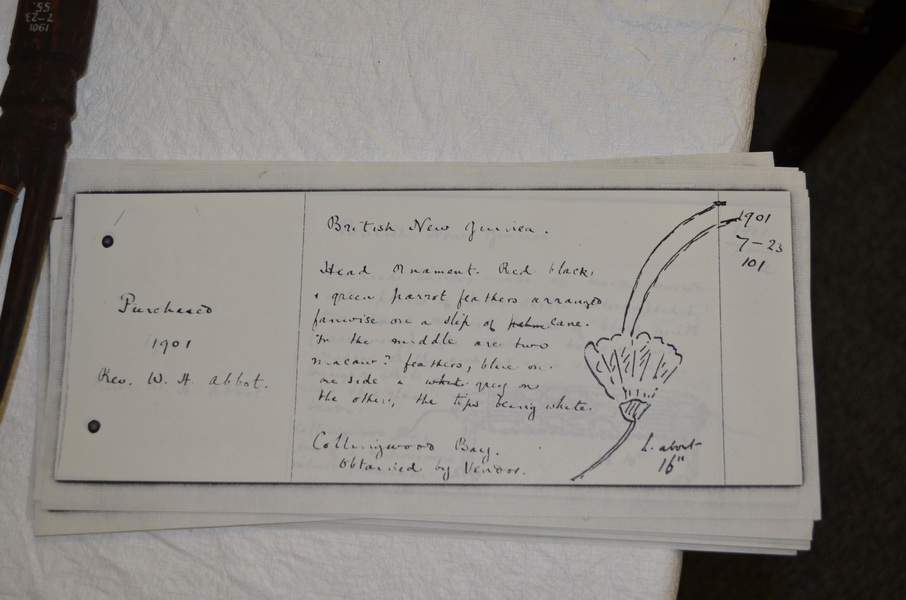 1901
7-23
55.
Purchased
1901
Rev. W. H. Abbot.
British New Guinea.
Head Ornament. Red black,
& green parrot feathers arranged
fanwise on a slip of cane.
In the middle are two
macaw? feathers, blue on
one side & grey on
the other, the tips being white.
Collingwood Bay.
Obtained by Vendor.
L. about
16"
1901
7-23
101